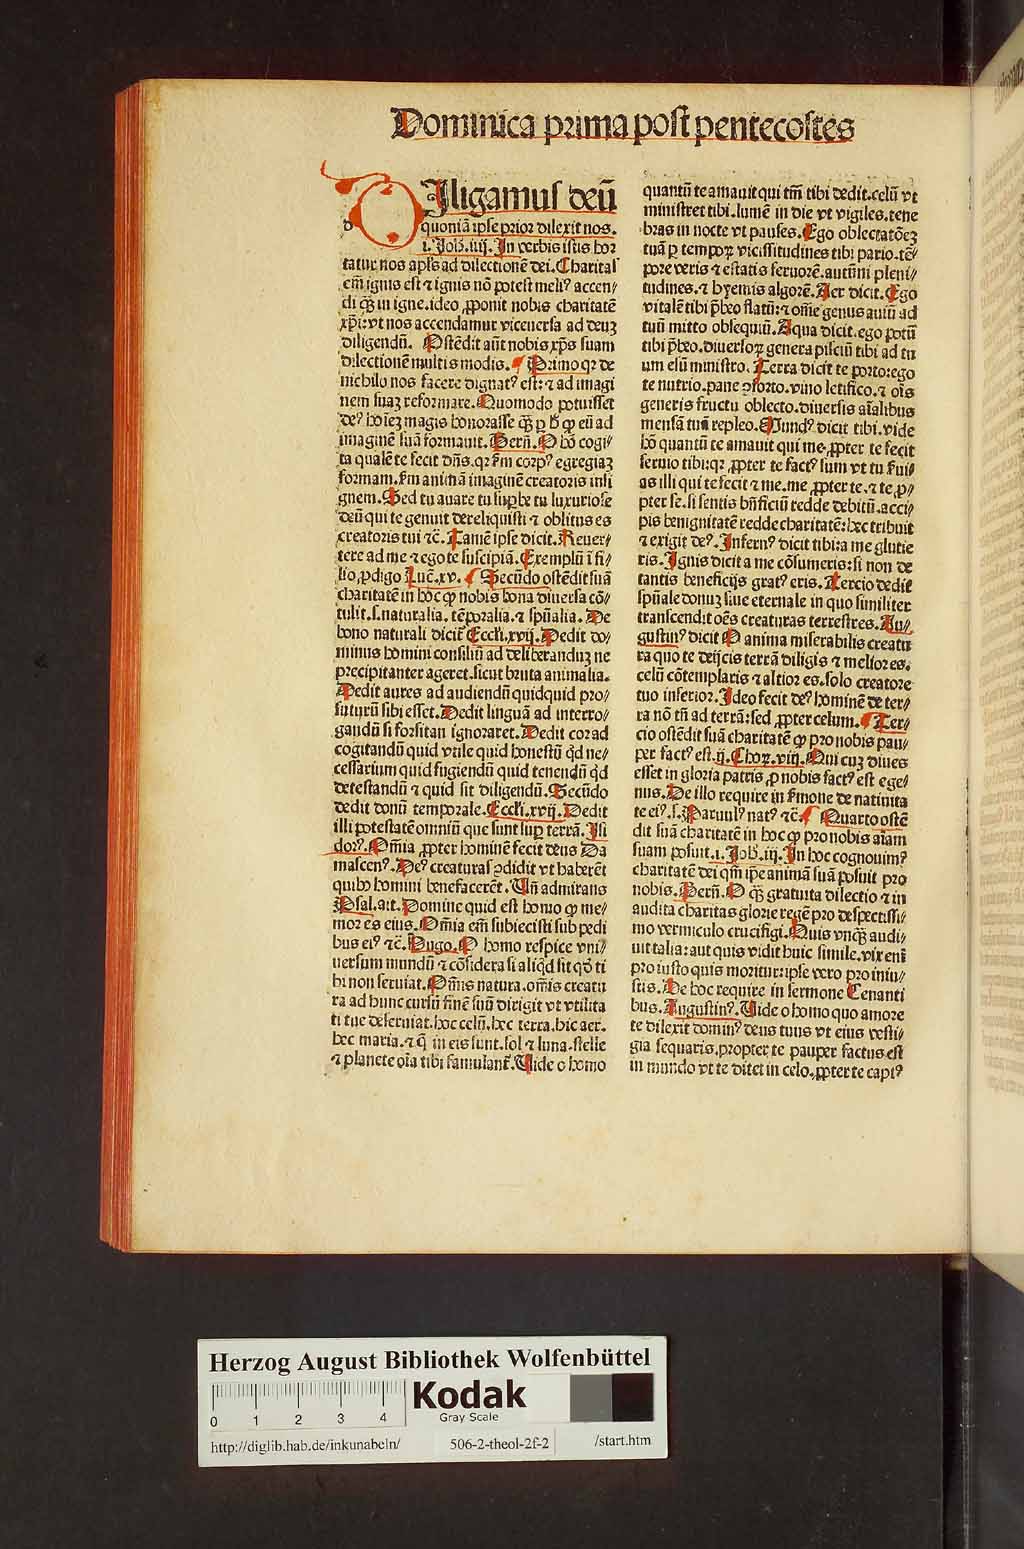 Dominica prima post pentecostes
DIligamus deū
quoniā ipse prior dilexit nos.
i. Joh̄. iiij. In verbis istis hor
tatur nos apl̄s ad dilectionē dei. Charitas
em̄ ignis est ⁊ ignis nō potest meliꝰ accen/
di qꝫ in igne. ideo ꝓponit nobis charitatē
xp̄i: vt nos accendamur viceuersa ad deuꝫ
diligendū. Ostēdit aūt nobis xp̄s suam
dilectionē multis modis. Primo qꝛ de
nichilo nos facere dignatꝰ est: ⁊ ad imagi
nem suaꝫ reformare. Quomodo potuisset
deꝰ hoīeꝫ magis honorasse qꝫ ꝑ hͦ ꝙ eū ad
imaginē suā formauit. Bern̄. O hō cogi/
ta qualē te fecit dn̄s. qꝛ s̄m corpꝰ egregiaꝫ
formam. s̄m animā imaginē creatoris insi
gnem. Sed tu auare tu suꝑbe tu luxuriose
deū qui te genuit dereliquisti ⁊ oblitus es
creatoris tui ⁊c̄. Tamē ipse dicit. Reuer/
tere ad me ⁊ ego te suscipiā. Exemplū ī fi/
lio ꝓdigo Luc̄. xv. Secūdo ostēdit suā
charitatē in hoc ꝙ nobis bona diuersa cō/
tulit. s. naturalia. tēporalia. ⁊ sp̄ūalia. De
bono naturali dicit̄ Eccl̄i. xvij. Dedit do/
minus homini consiliū ad deliberanduꝫ ne
precipitanter ageret. sicut bruta animalia.
Dedit aures ad audiendū quidquid pro/
futurū sibi esset. Dedit linguā ad interro/
gandū si forsitan ignoraret. Dedit cor ad
cogitandū quid vtile quid honestū qͥd ne/
cessarium quid fugiendū quid tenendū qͥd
detestandū ⁊ quid sit diligendū. Secūdo
dedit donū temporale. Eccl̄i. xvij. Dedit
illi potestatē omniū que sunt suꝑ terrā. Isi
doꝛꝰ. Om̄ia ꝓpter hominē fecit deus Da
mascenꝰ. Deꝰ creaturas ꝯdidit vt haberēt
quibꝰ homini benefacerēt. Vn̄ admirans
Psal. ait. Domine quid est homo ꝙ me/
mor es eius. Om̄ia em̄ subiecisti sub pedi
bus eiꝰ ⁊c̄. Hugo. O homo respice vni/
uersum mundū ⁊ cōsidera si aliqͥd sit qͦd ti
bi non seruiat. Om̄is natura. om̄is creatu
ra ad hunc cursū finē suū dirigit vt vtilita
ti tue deseruiat. hoc celū. hec terra. hic aer.
hec maria. ⁊ q̄ in eis sunt. sol ⁊ luna. stelle
⁊ planete oīa tibi famulant̄. Vide o homo
quantū te amauit qui tm̄ tibi dedit. celū vt
ministret tibi. lumē in die vt vigiles. tene
bras in nocte vt pauses. Ego oblectatōeꝫ
tuā ꝑ tempoꝝ vicissitudines tibi pario. tē/
pore veris ⁊ estatis feruorē. autūni pleni/
tudines. ⁊ hyemis algorē. Aer dicit. Ego
vitalē tibi p̄beo flatū: ⁊ om̄e genus auiū ad
tuū mitto obsequiū. Aqua dicit. ego potū
tibi p̄beo. diuersoꝝ genera pisciū tibi ad tu
um esū ministro. Terra dicit te porto: ego
te nutrio. pane ꝯforto. vino letifico. ⁊ oīs
generis fructu oblecto. diuersis aīalibus
mensā tuā repleo. Mundꝰ dicit tibi. vide
hō quantū te amauit qui me ꝓpter te fecit
seruio tibi: qꝛ ꝓpter te factꝰ sum vt tu s̄ui/
as illi qui te fecit ⁊ me. me ꝓpter te. ⁊ te ꝓ/
pter se. si sentis bn̄ficiū redde debitū. acci/
pis benignitatē redde charitatē: hec tribuit
⁊ exigit deꝰ. Infernꝰ dicit tibi: a me glutie
ris. Ignis dicit a me cōsumeris: si non de
tantis beneficijs gratꝰ eris. Tercio dedit
sp̄uale donuꝫ siue eternale in quo similiter
transcendit oēs creaturas terrestres. Au/
gustinꝰ dicit O anima miserabilis creatu
ra quo te deijcis terrā diligis ⁊ melior es.
celū cōtemplaris ⁊ altior es. solo creatore
tuo inferior. Ideo fecit deꝰ hominē de ter/
ra nō tn̄ ad terrā: sed ꝓpter celum. Ter/
cio ostēdit suā charitatē ꝙ pro nobis pau/
per factꝰ est. ij. Choꝝ. viij. Qui cuꝫ diues
esset in gloria patris ꝓ nobis factꝰ est ege/
nus. De illo require in s̄mone de natiuita
te eiꝰ. s. Paruulꝰ natꝰ ⁊c̄. Quarto ostē
dit suā charitatē in hoc ꝙ pro nobis aīam
suam posuit. i. Joh̄. iij. In hoc cognouimꝰ
charitatē dei qm̄ ip̄e animā suā posuit pro
nobis. Bern̄. O qꝫ gratuita dilectio ⁊ in
audita charitas glorie regē pro despectissi/
mo vermiculo crucifigi. Quis vnqꝫ audi/
uit talia: aut quis vidit huic simile. vix eni̅
pro iusto quis moritur: ipse vero pro iniu/
stis. De hoc require in sermone Cenanti
bus. Augustinꝰ. Vide o homo quo amore
te dilexit dominꝰ deus tuus vt eius vesti/
gia sequaris. propter te pauper factus est
in mundo vt te ditet in celo. ꝓpter te captꝰ
Herzog August Bibliothek Wolfenbüttel
Kodak
Gray Scale
0 1 2 3 4
http://diglib.hab.de/inkunabeln/ 506-2-theol-2f-2 /start.htm